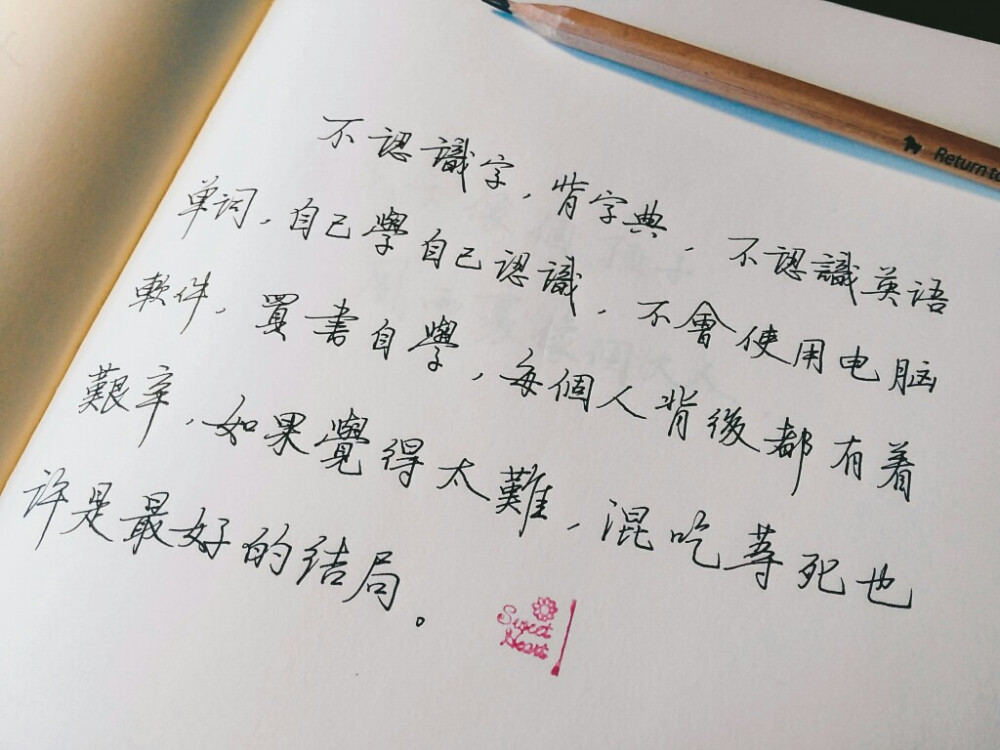 不認識字，背字典，不認識英语
单词，自己學自己認識，不會使用电脑
軟件，買書自學，每個人背後都有着
艱辛，如果覺得太難，混吃等死也
许是最好的结局。
Sweet
Heart
Return to